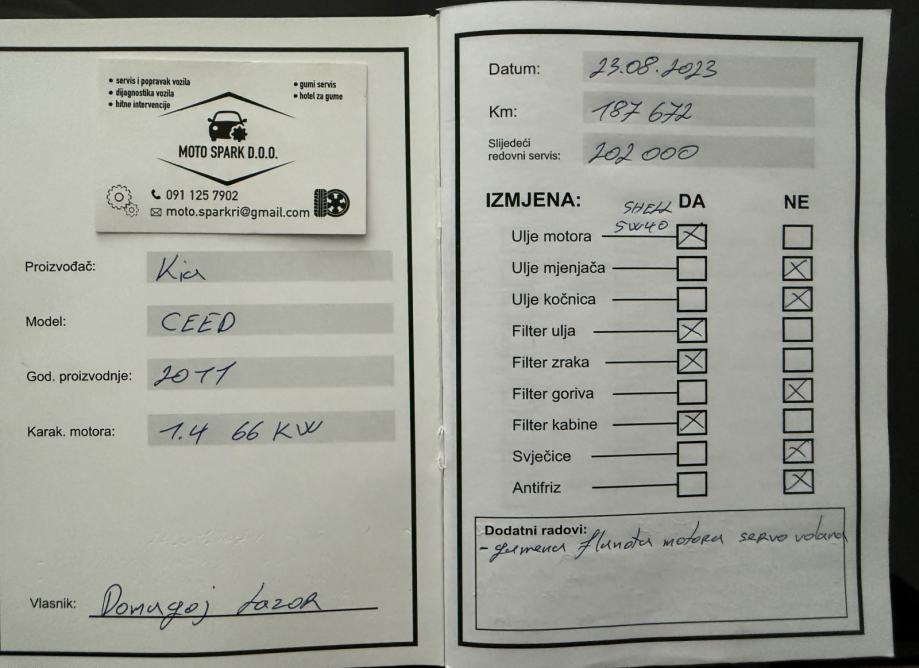 • servis i popravak vozila
• dijagnostika vozila
• hitne intervencije
• gumi servis
• hotel za gume
MOTO SPARK D.O.O.
091 125 7902
moto.sparkri@gmail.com
Proizvođač: Kia
Model: CEED
God. proizvodnje: 2011
Karak. motora: 1.4 66 KW
Vlasnik: Domagoj
Datum: 23.08.2023
Km: 187 672
Slijedeći
redovni servis: 202 000
IZMJENA: DA NE
SHELL
5W40
Ulje motora
Ulje mjenjača
Ulje kočnica
Filter ulja
Filter zraka
Filter goriva
Filter kabine
Svječice
Antifriz
Dodatni radovi:
- motora servo volana